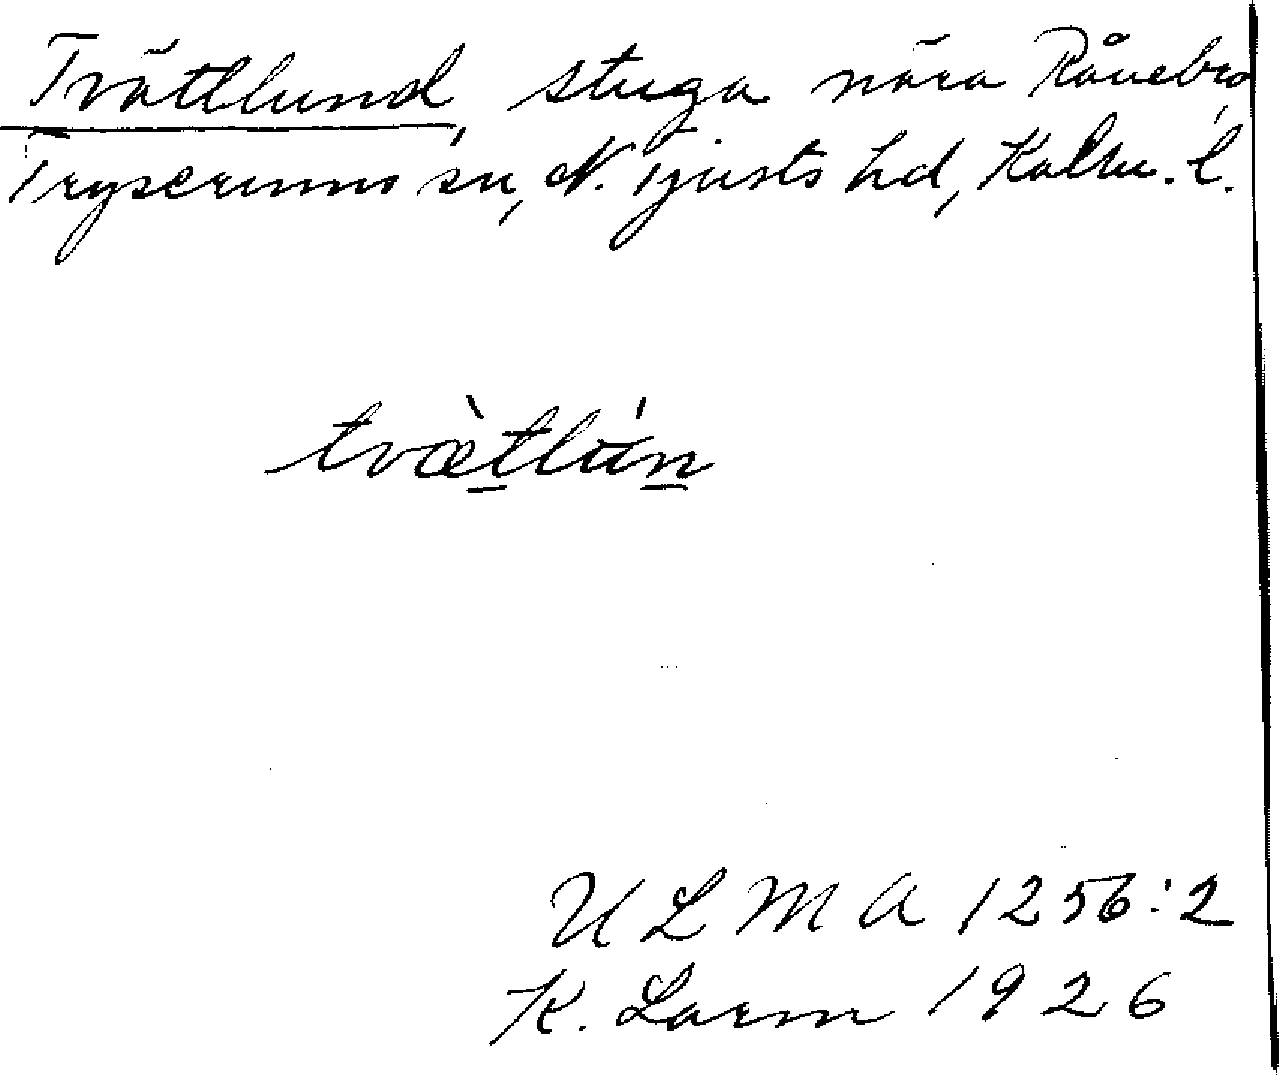 Tvättlund, stuga nära Rånebro,
Tryserums sn, N. Tjusts hd, Kalm. l.
tvæ̀tlún
ULMA 1256:2
K. Larm 1926